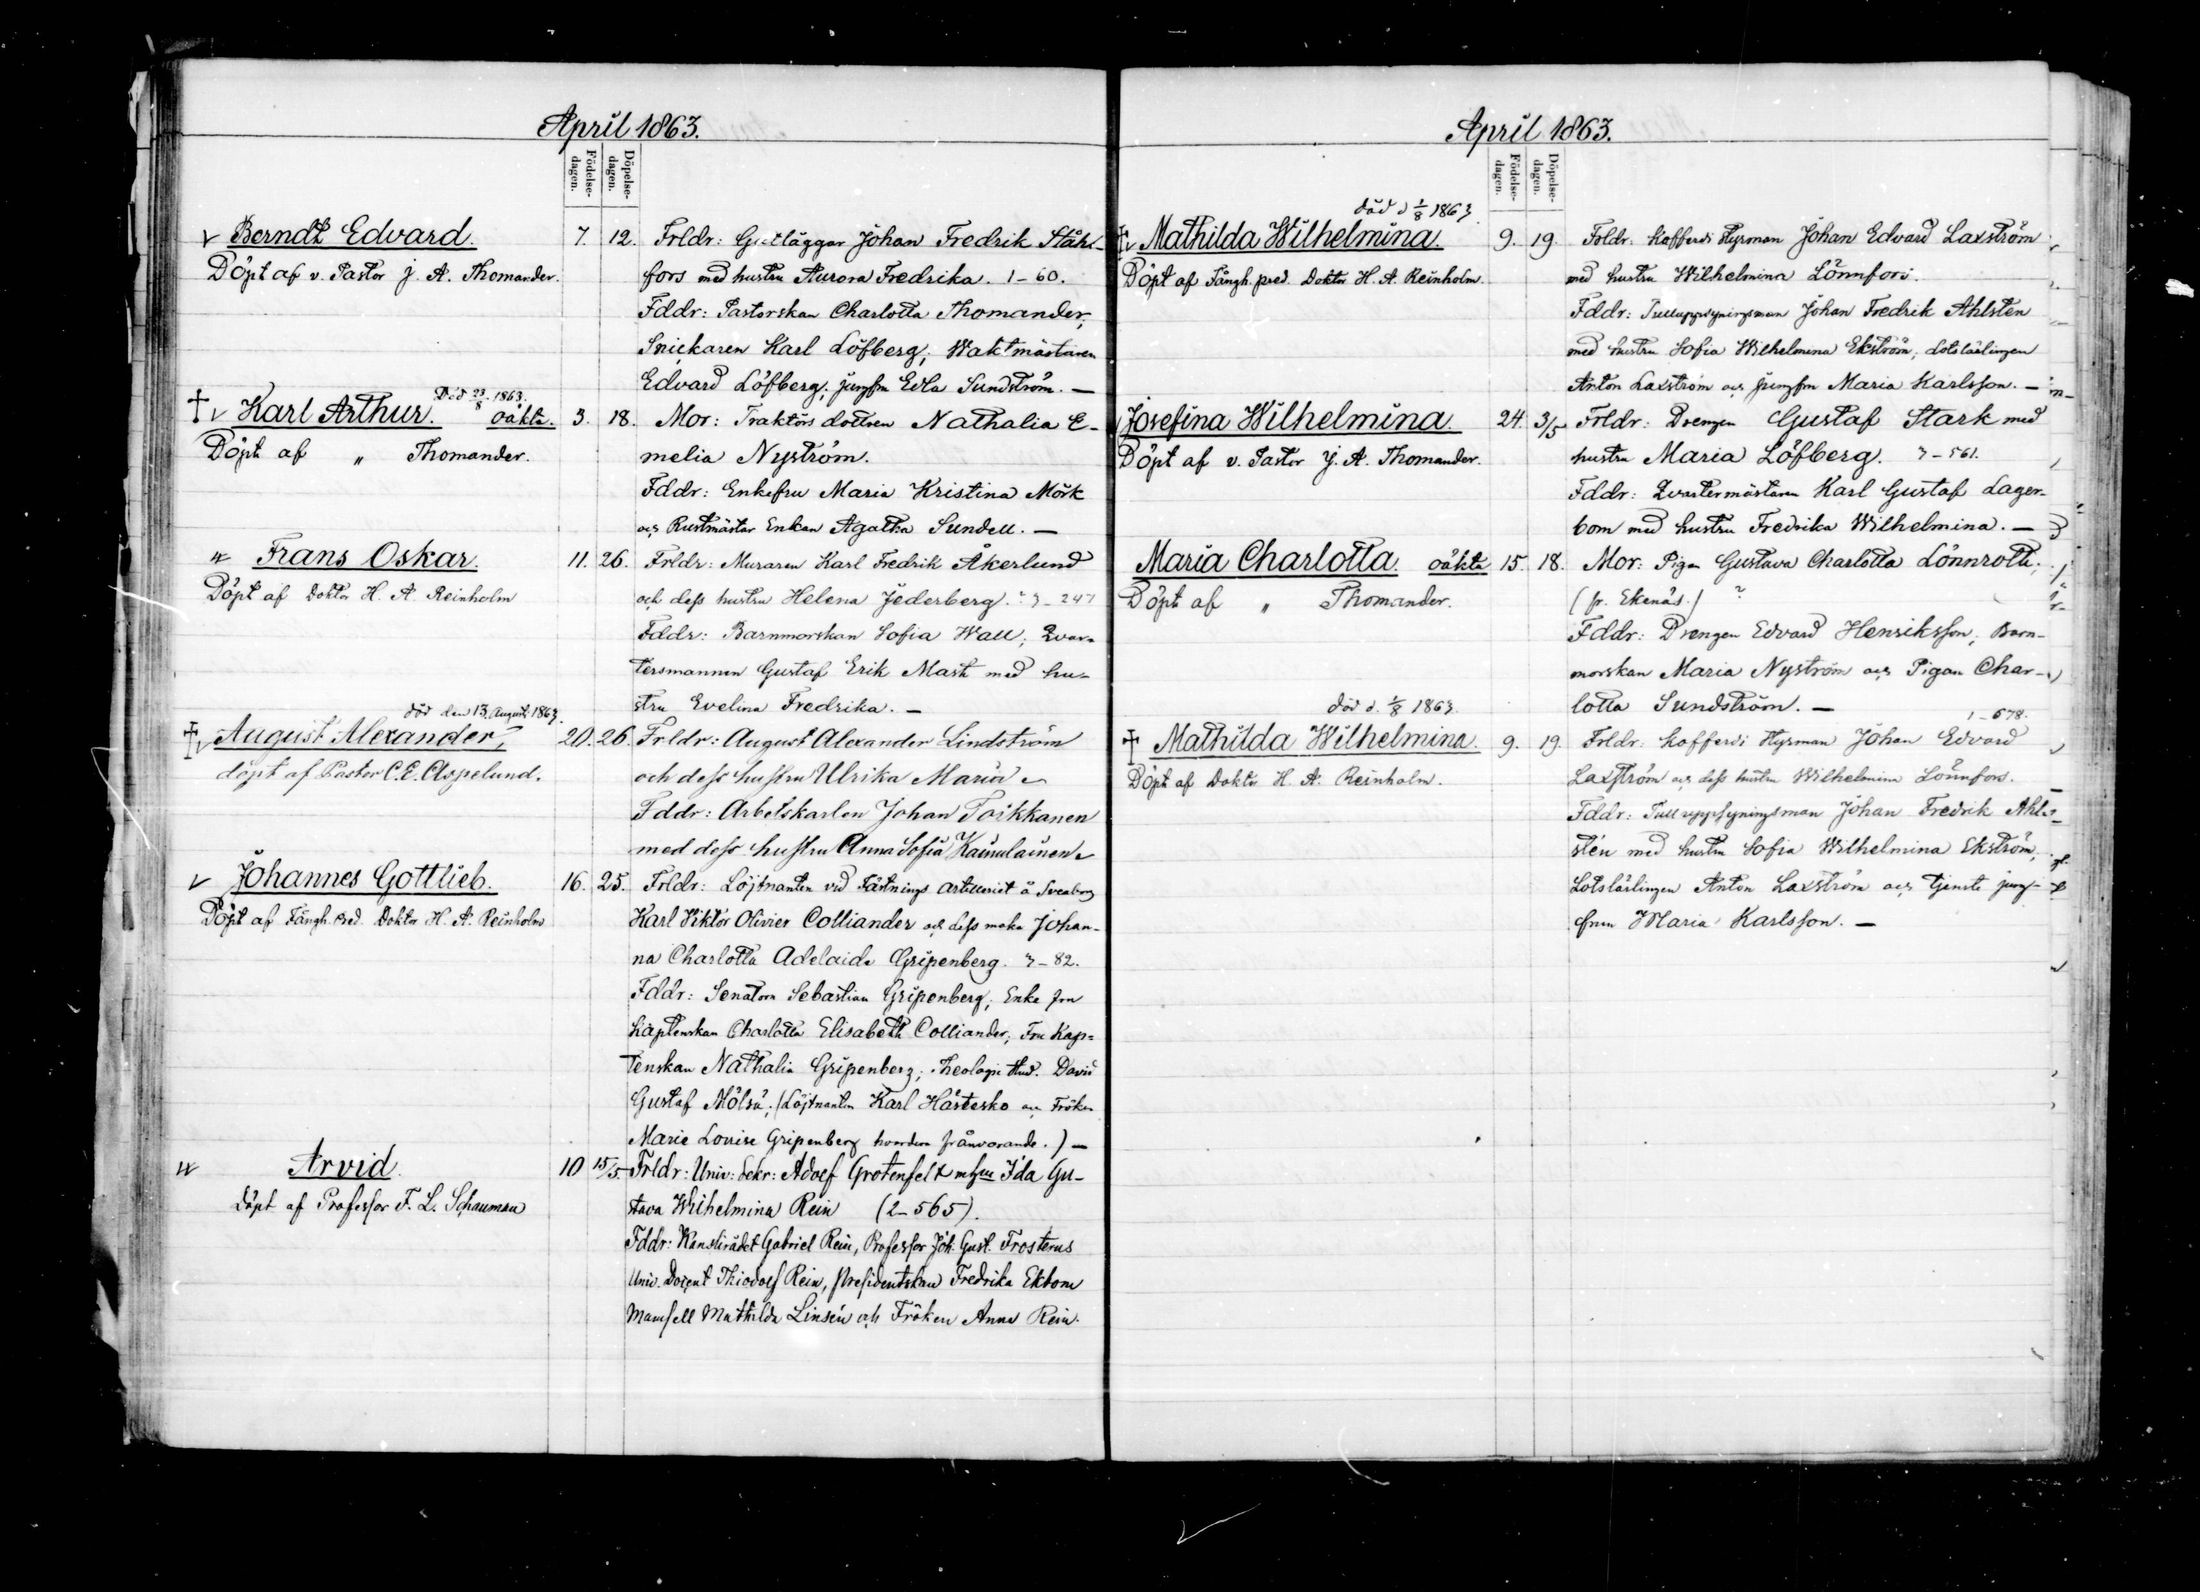 April 1863.
Födelse-dagen.
Döpelse-dagen.
Berndt Edvard. 7. 12. Frldr: Gatläggar Johan Fredrik Ståhl-
Döpt af v. Pastor J. A. Thomander. fors med hustru Aurora Fredrika. 1-60.
Fddr: Pastorskan Charlotta Thomander,
Snickaren Karl Löfberg; Waktmästaren
Edvard Löfberg; jungfru Edla Sundström. —
Död 23/8 1863.
Karl Arthur. oäkta. 3. 18. Mor: Traktörs dottren Nathalia E-
Döpt af „ Thomander. melia Nyström.
Fddr: Enkefru Maria Kristina Mörk
och Rustmästar Enkan Agatha Sundell. —
Frans Oskar. 11. 26. Frldr: Muraren Karl Fredrik Åkerlund
Döpt af Doktor H. A. Reinholm och dess hustru Helena Jederberg. 3-247
Fddr: Barnmorskan Sofia Wall; Qvar-
tersmannen Gustaf Erik Mask med hu-
stru Evelina Fredrika. —
död den 13. August 1863.
August Alexander, 20. 26. Frldr: August Alexander Lindström
döpt af Pastor C. E. Aspelund. och dess hustru Ulrika Maria
Fddr: Arbetskarlen Johan Toikkanen
med dess hustru Anna Sofia Kainulainen
Johannes Gottlieb. 16. 25. Frldr: Löjtnanten vid Fästnings artilleriet å Sveaborg
Döpt af Fångh. pred. Doktor H. A. Reinholm Karl Viktor Olivier Colliander och dess maka Johan-
na Charlotta Adelaide Gripenberg. 3-82.
Fddr: Senatorn Sebastian Gripenberg; Enke fru
Kaptenskan Charlotta Elisabeth Colliander; Fru Kap-
tenskan Nathalia Gripenberg; Theologie Stud. David
Gustaf Mölsä; (Löjtnanten Karl Hästesko och Fröken
Marie Louise Gripenberg hvardera frånvarande.) —
Arvid. 10 15/5. Frldr: Univ: Sekr: Adolf Grotenfelt m hu Ida Gu-
Döpt af Professor F. L. Schauman stava Wilhelmina Rein (2-565).
Fddr: Kanslirådet Gabriel Rein, Professor Joh. Gust. Frosterus
Univ. Docent Thiodolf Rein, Presidentskan Fredrika Ekbom
Mamsell Mathilda Linsén och Fröken Anna Rein.
April 1863.
Födelse-dagen.
Döpelse-dagen.
död d 1/8 1863
Mathilda Wilhelmina. 9. 19. Foldr: Kofferdi Styrman Johan Edvard Laxström
Döpt af Fångh. pred. Doktor H. A. Reinholm. med hustru Wilhelmina Lönnfors.
Fddr: Tulluppsyningsman Johan Fredrik Ahlsten
med hustru Sofia Wilhelmina Ekström, Lotslärlingen
Anton Laxström och jungfru Maria Karlsson. —
Josefina Wilhelmina. 24. 3/5 Frldr: Drengen Gustaf Stark med
Döpt af v. Pastor J. A. Thomander. hustru Maria Löfberg. 3-561.
Fddr: Qvartermästaren Karl Gustaf Lager-
bom med hustru Fredrika Wilhelmina. —
Maria Charlotta. oäkta 15. 18. Mor: Pigan Gustava Charlotta Lönnroth,
Döpt af „ Thomander. (fr. Ekenäs.) ?
Fddr: Drengen Edvard Henriksson; Barn-
morskan Maria Nyström och Pigan Char-
lotta Sundström. —
död d. 1/8 1863. 1-678.
Mathilda Wilhelmina. 9. 19. Frldr: Kofferdi Styrman Johan Edvard
Döpt af Doktor H. A. Reinholm. Laxström och dess hustru Wilhelmina Lönnfors.
Fddr: Tulluppsyningsman Johan Fredrik Ahl-
stén med hustru Sofia Wilhelmina Ekström,
Lotslärlingen Anton Laxström och tjenste jung-
frun Maria Karlsson. —